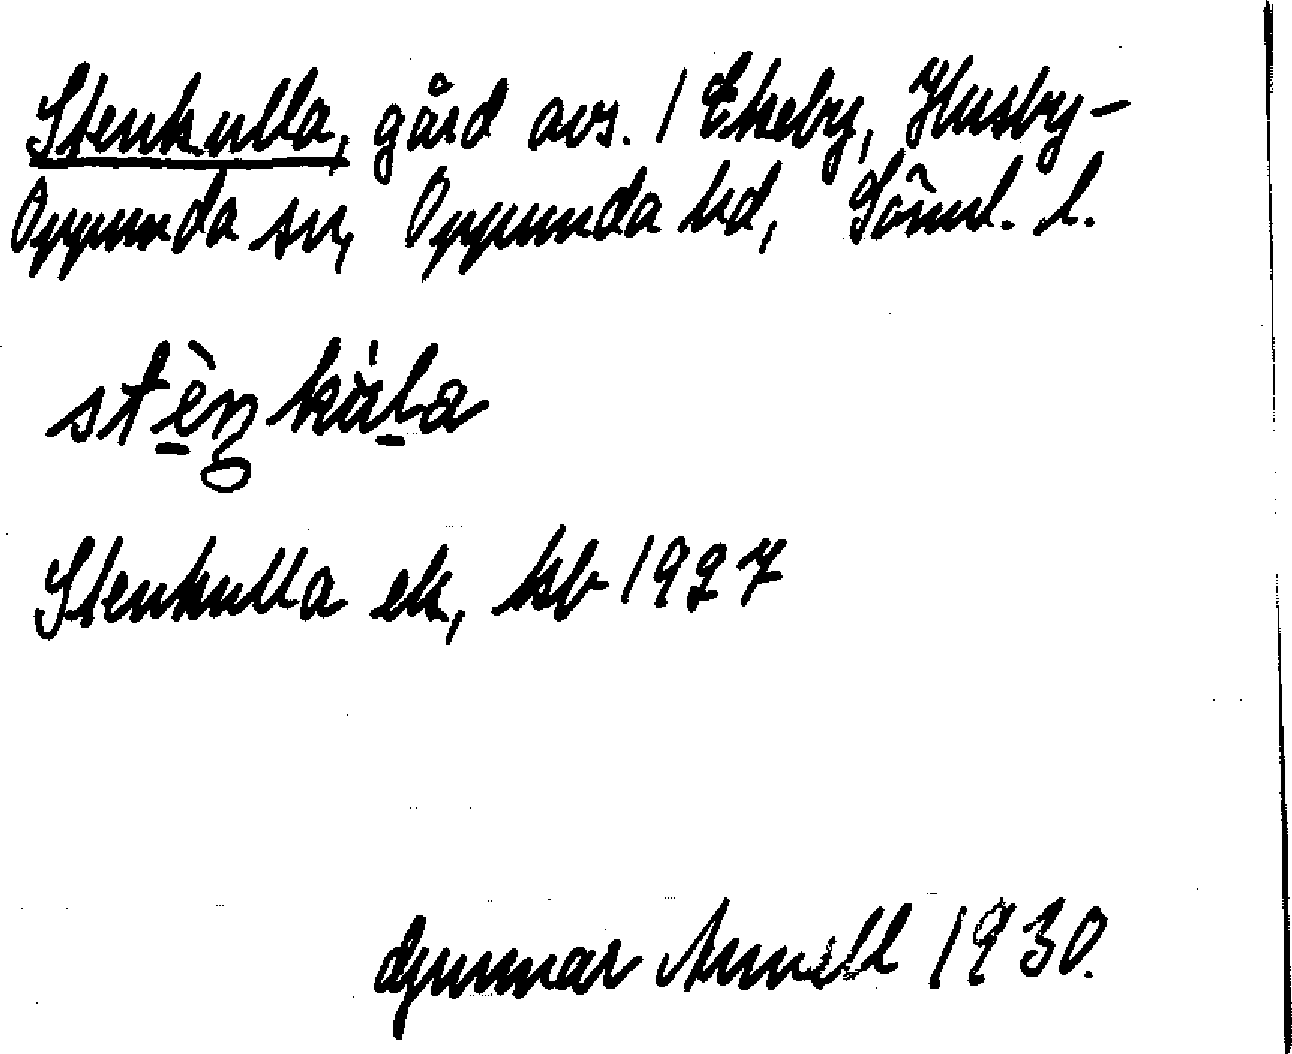 Stenkulla, gård avs. 1 Ekeby, Husby-
Oppunda sn, Oppunda hd, Söml. l.
Stenkulla ek, kb 1927
Gunnar Arnell 1930.